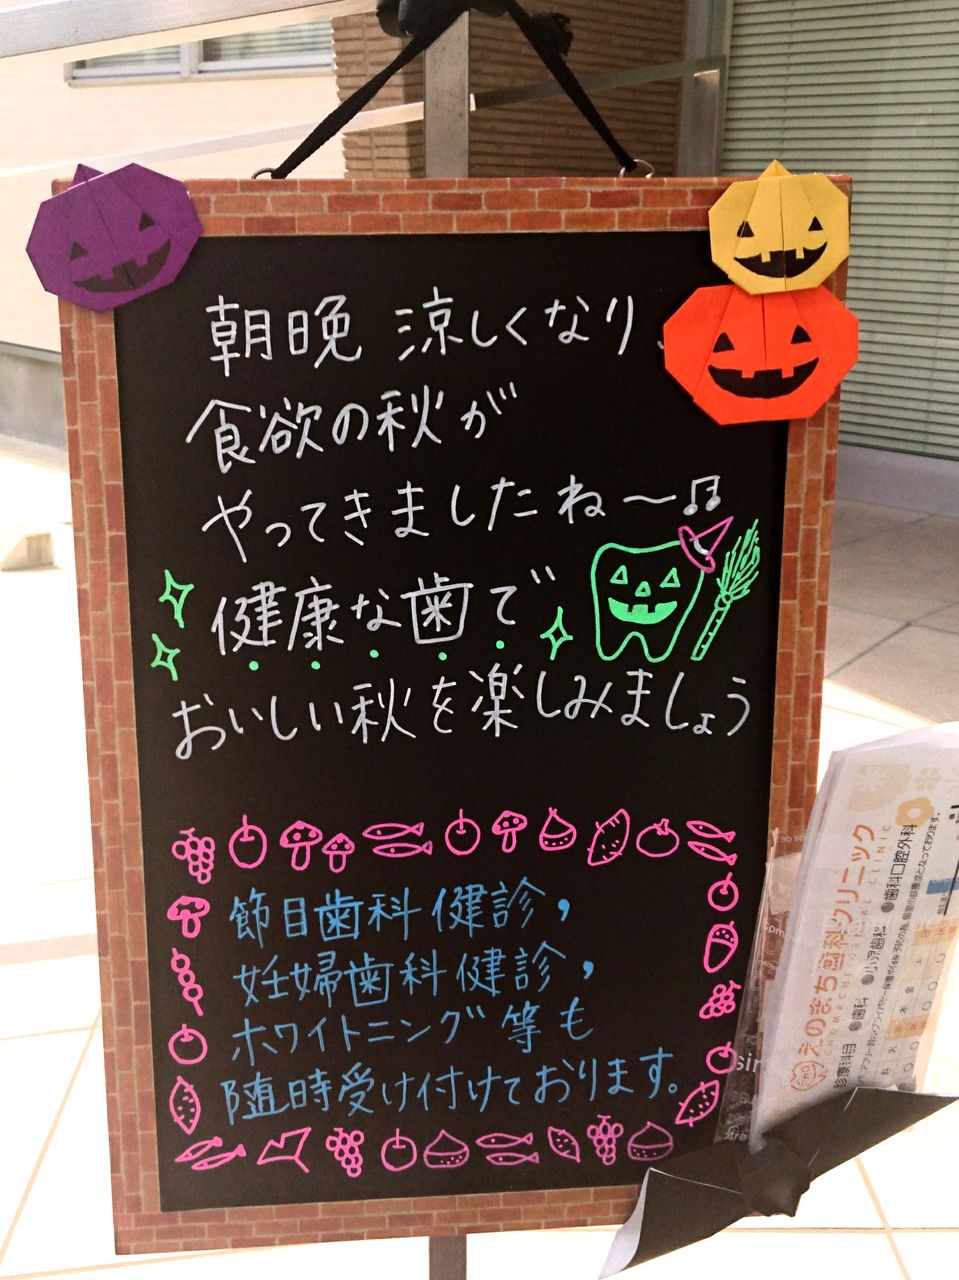 朝晩 涼しくなり、
食欲の秋が
やってきましたね〜♫
健康な歯で
おいしい秋を楽しみましょう
節目歯科健診,
妊婦歯科健診,
ホワイトニング等も
随時受け付けております。
えのまち歯科クリニック
診療科目 ●歯科 ●小児歯科 ●歯科口腔外科